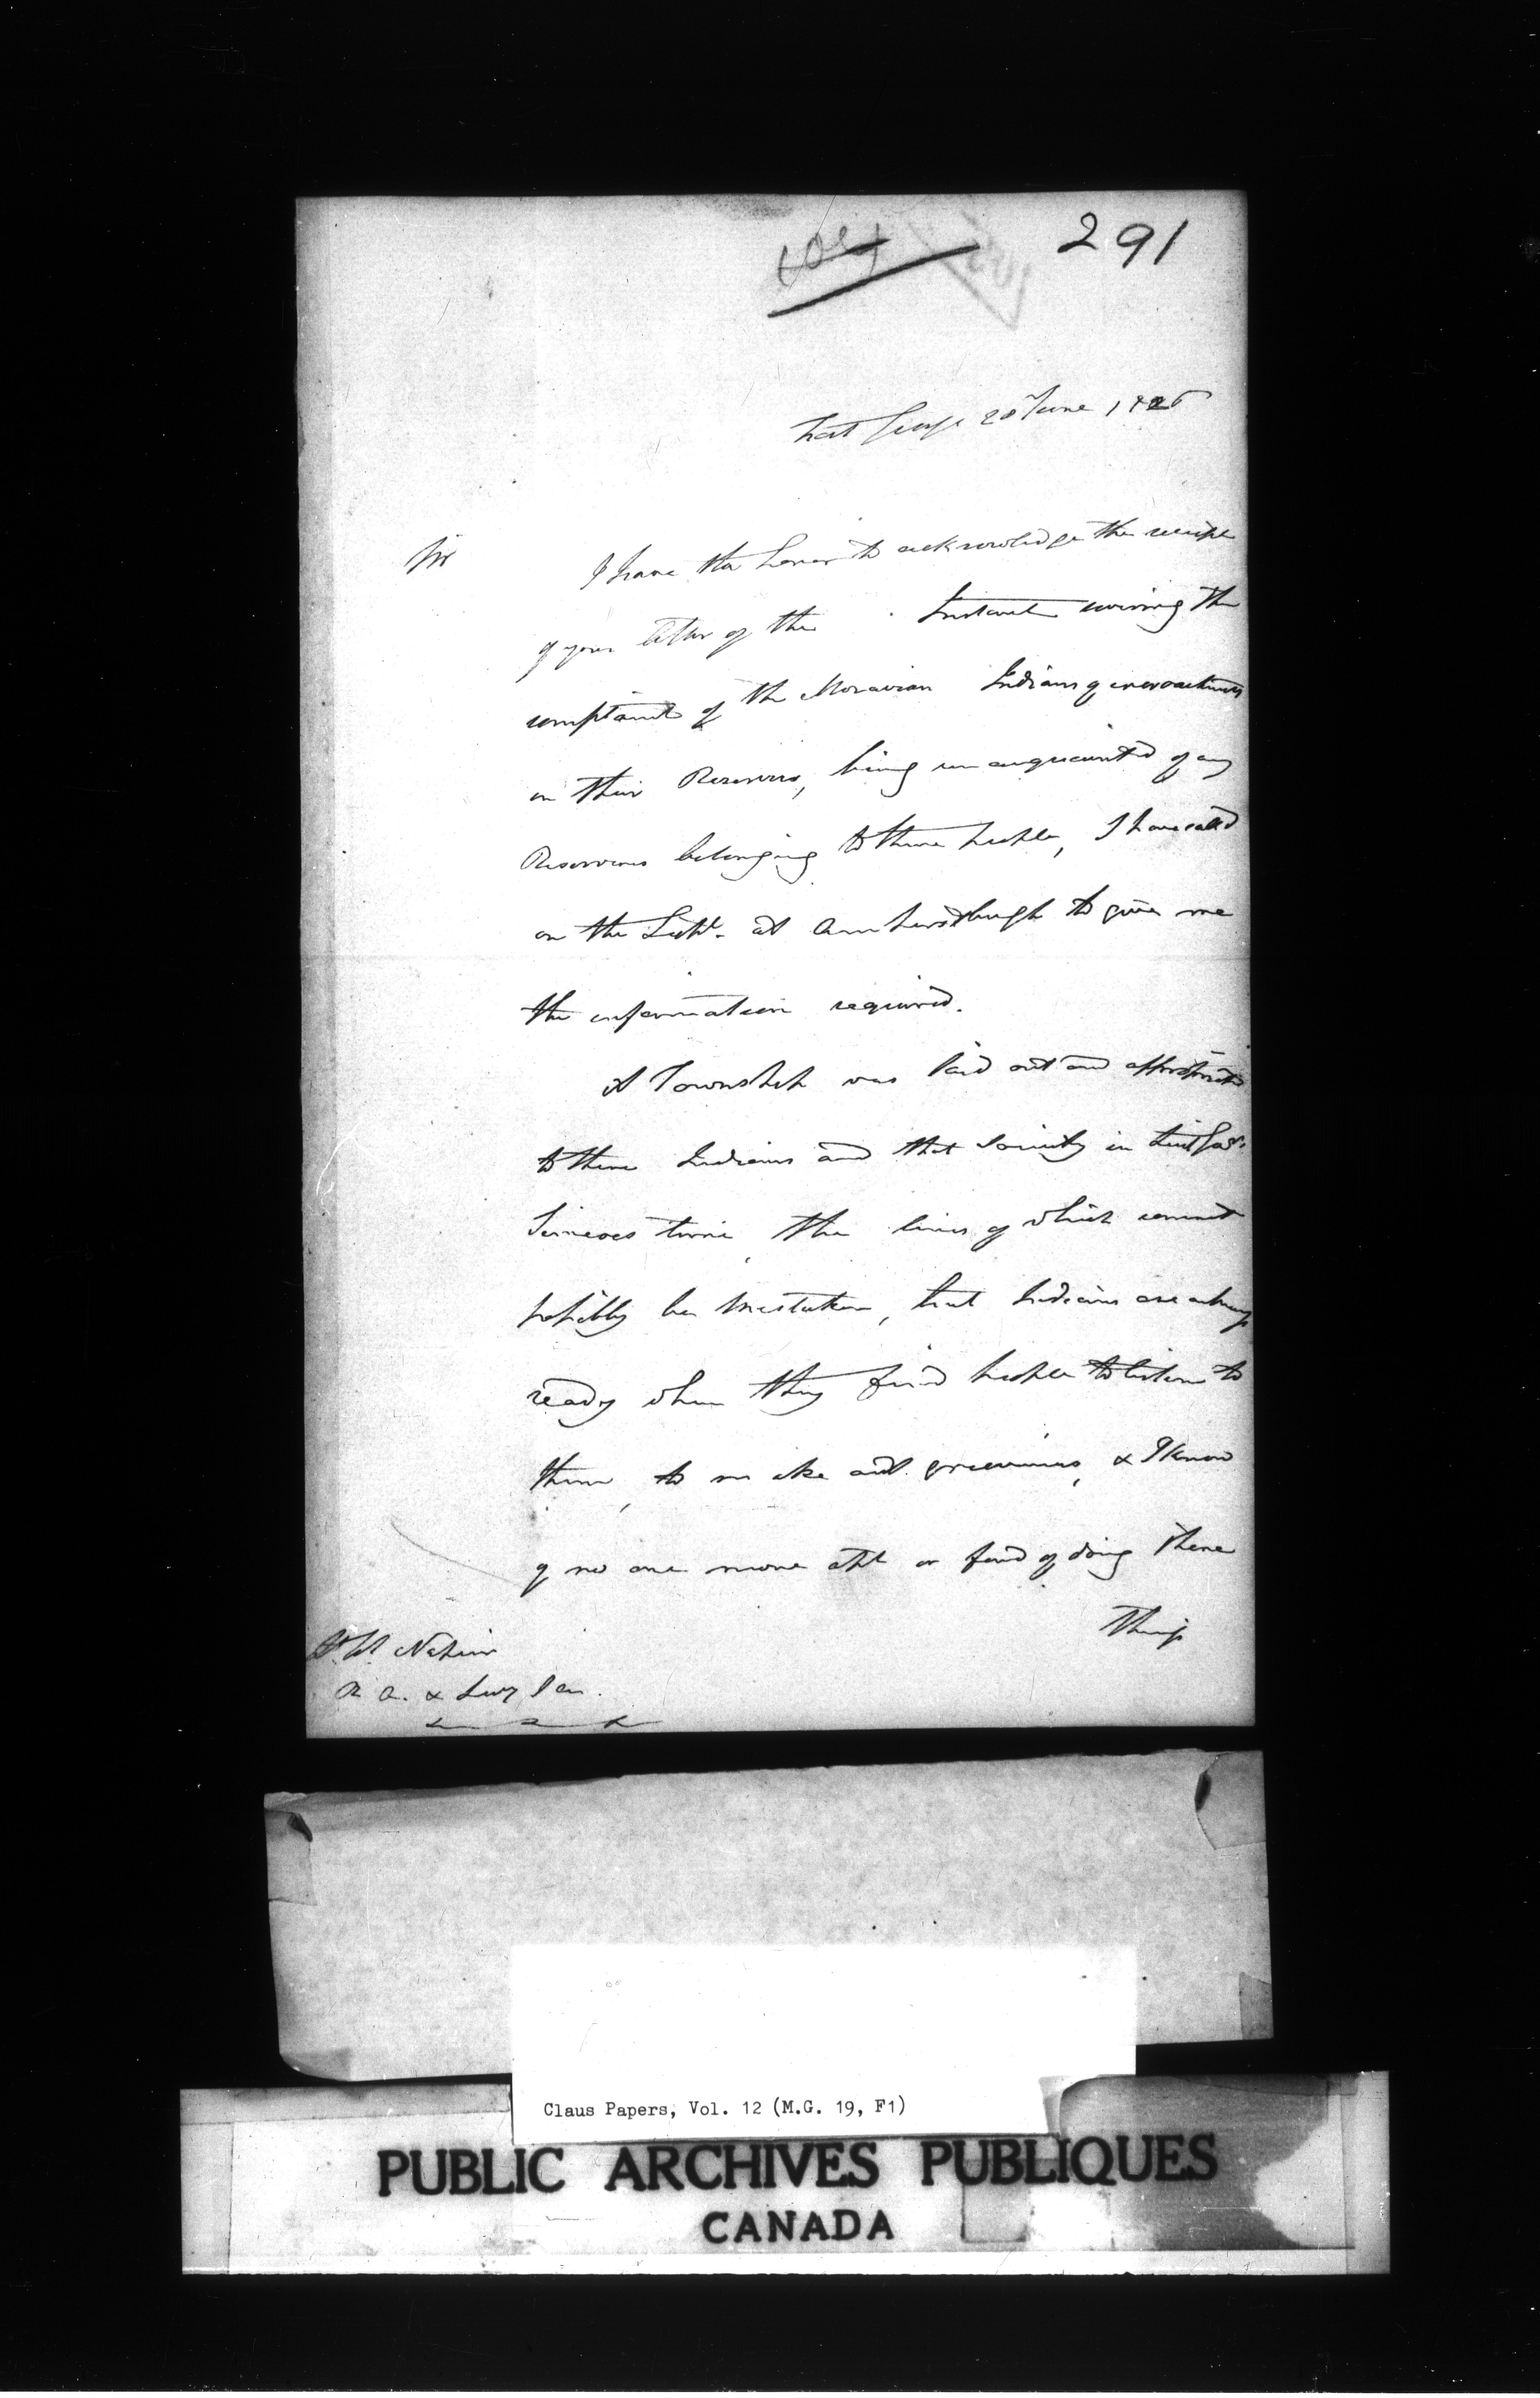 291
Fort George 20 June 1826
Sir
I have the honor to acknowledge the receipt
of your letter of the Instant covering the
complaint of the Moravian Indians of encroachments
on their Reserves, being unacquainted of any
Reserves belonging to these people, I have called
on the Supt. at Amherstburgh to give me
the information required.
A Township was laid out and appropriated
to these Indians and that Society in Lieut Gov.
Simcoes time the lines of which cannot
possibly be mistaken, but Indians are always
ready when they find people to listen to
them, to make out grievances, & I know
of no one more apt or fond of doing these
things
R A. &
Claus Papers, Vol. 12 (M.G. 19, F1)
PUBLIC ARCHIVES PUBLIQUES
CANADA